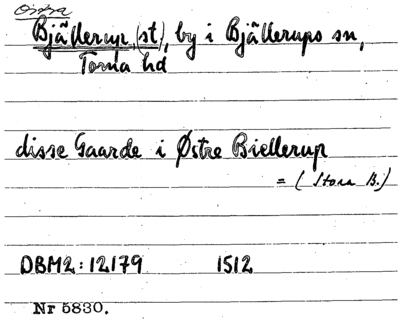 Östra
Bjällerup, (st), by i Bjällerups sn,
Torna hd
disse Gaarde i Østre Biellerup
= (Stora B.)
DBM2:12179 1512
Nr 5830.